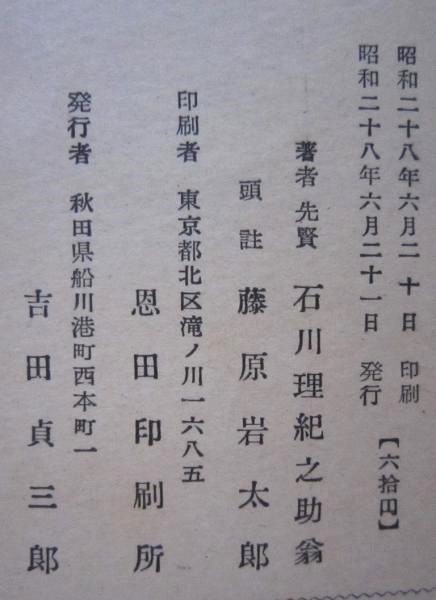 昭和二十八年六月二十日 印刷
昭和二十八年六月二十一日 発行
【六拾円】
著者先賢 石川理紀之助翁
頭註 藤原岩太郎
印刷者 東京都北区滝ノ川一六八五
恩田印刷所
発行者 秋田県船川港町西本町一
吉田貞三郎